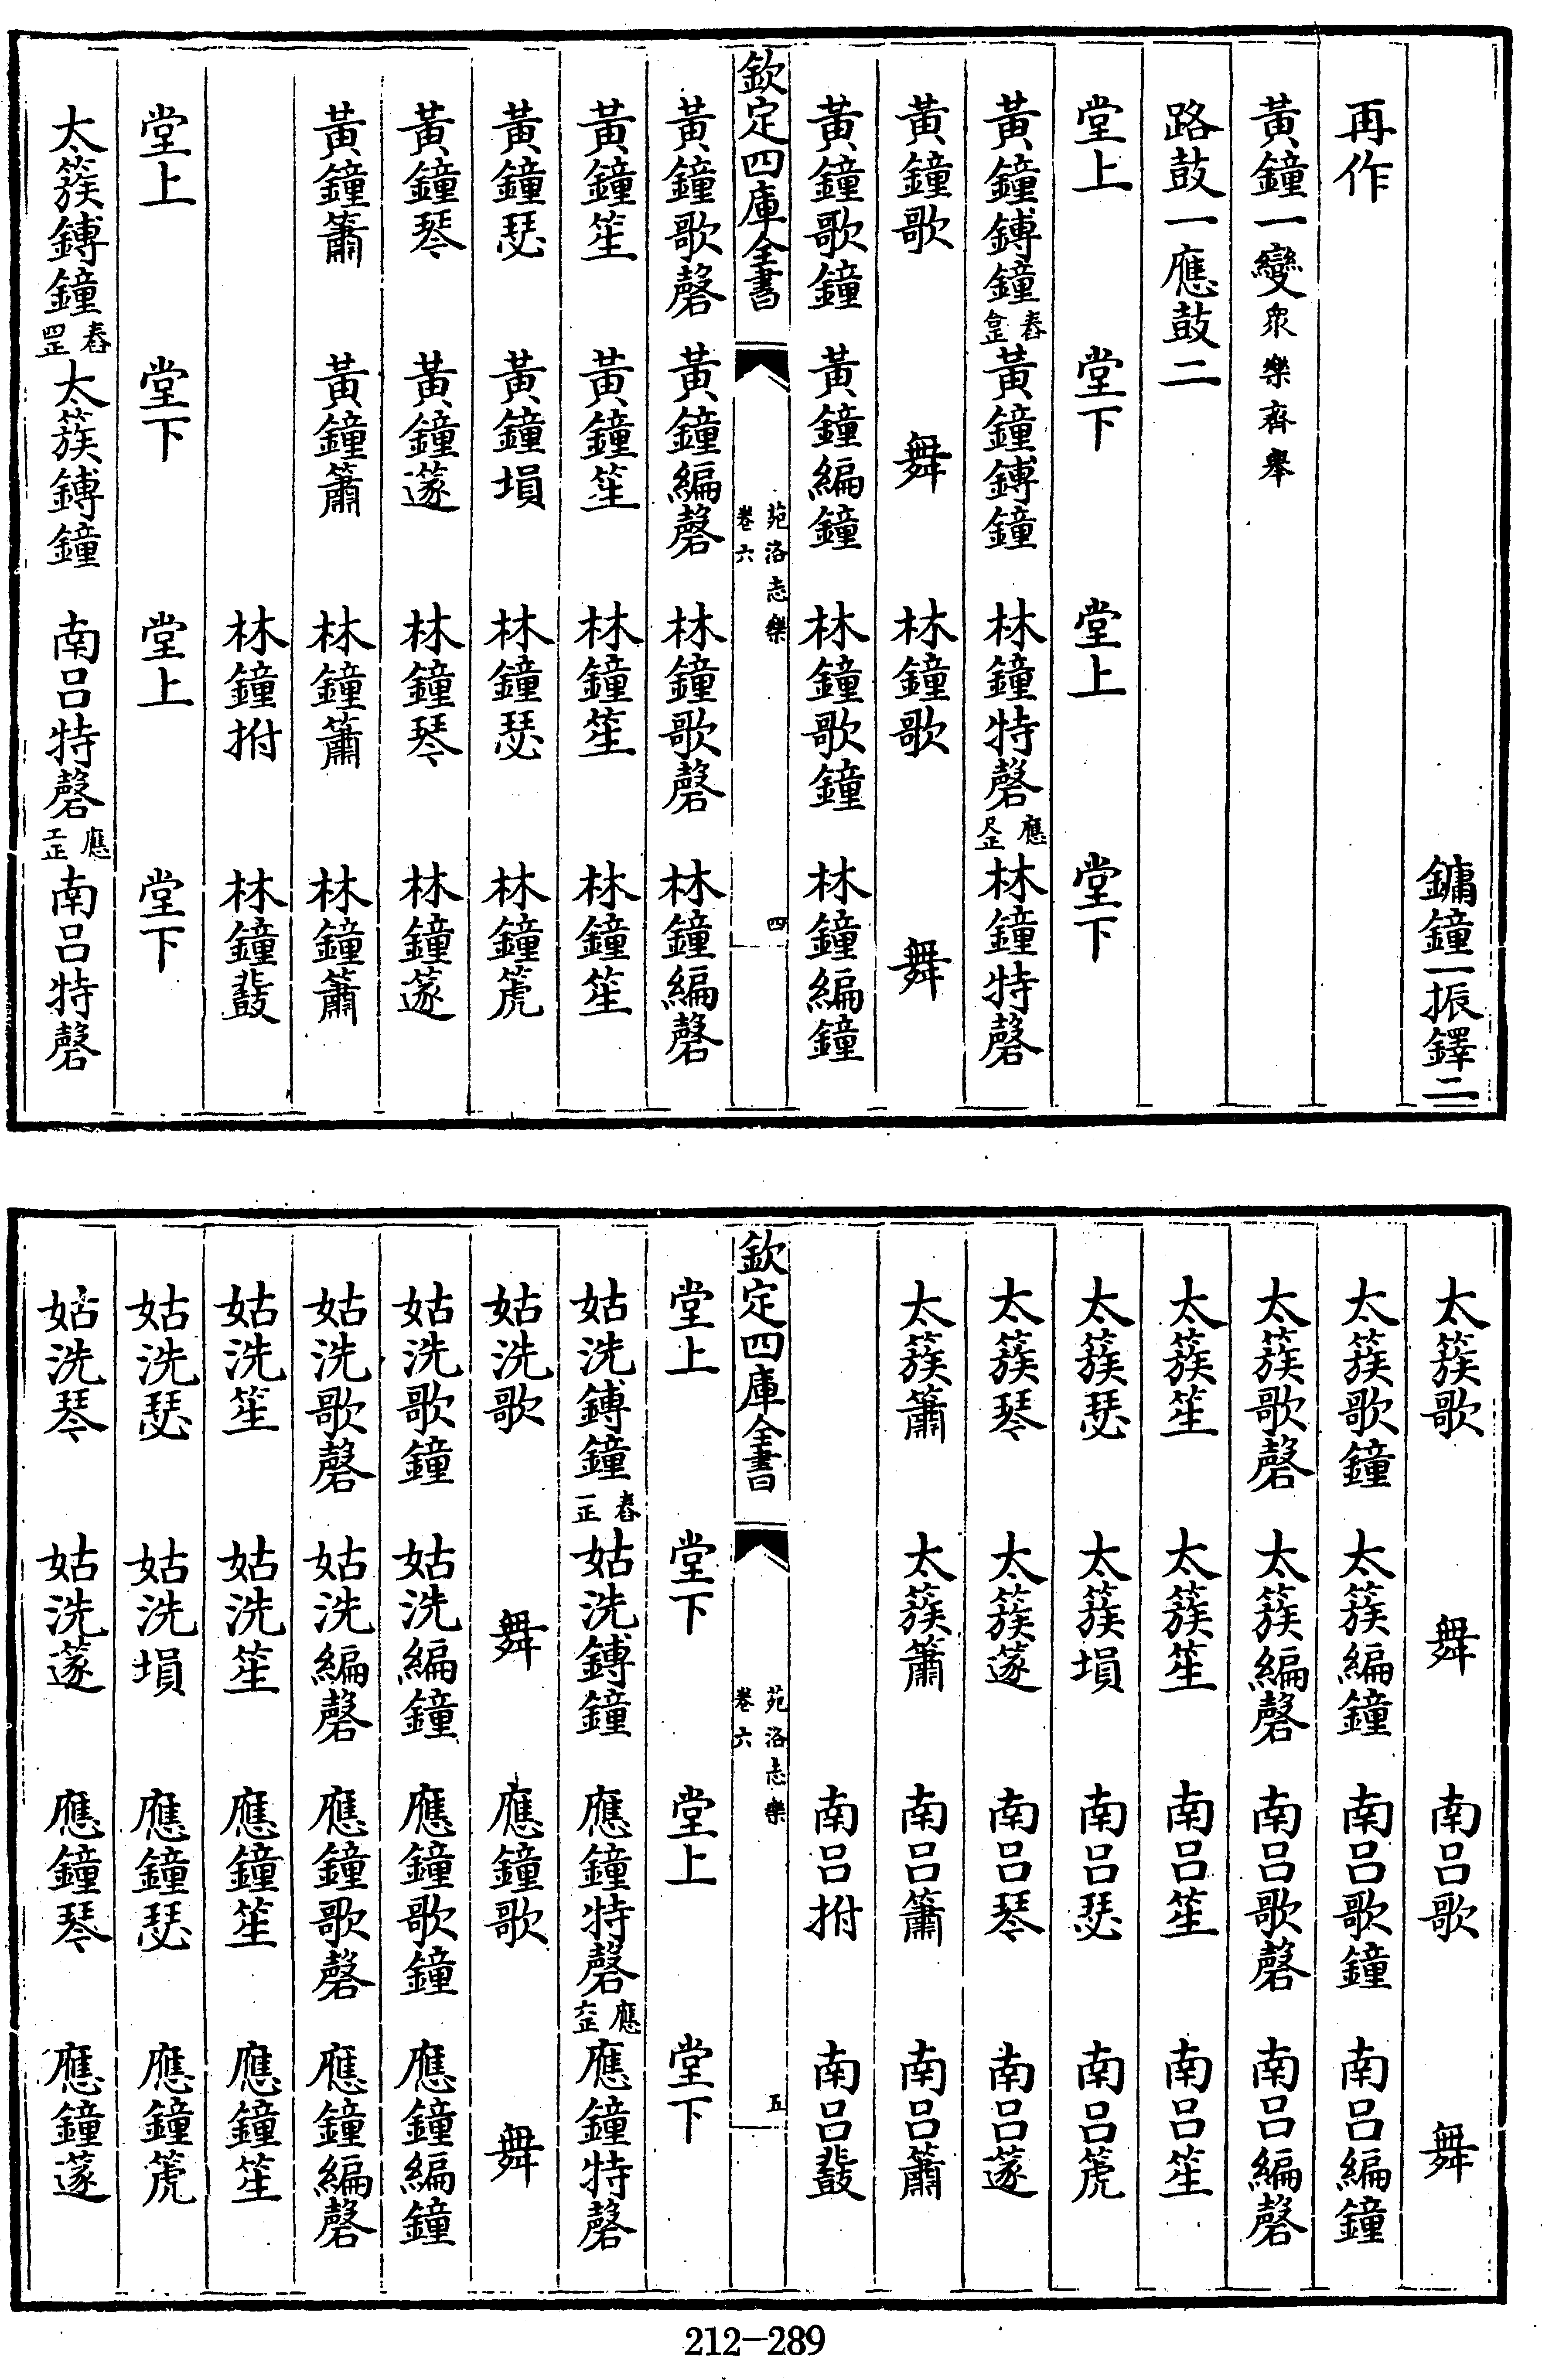 鏞鐘一振鐸二
再作
黃鐘一變眾樂齊舉
路鼓一應鼓二
堂上 堂下 堂上 堂下
黃鐘鎛鐘舂合正黃鐘鎛鐘 林鐘特磬應尺正林鐘特磬
黃鐘歌 舞 林鐘歌 舞
黃鐘歌鐘 黃鐘編鐘 林鐘歌鐘 林鐘編鐘
欽定四庫全書 苑洛志樂 卷六 四
黃鐘歌磬 黃鐘編磬 林鐘歌磬 林鐘編磬
黃鐘笙 黃鐘笙 林鐘笙 林鐘笙
黃鐘瑟 黃鐘塤 林鐘瑟 林鐘箎
黃鐘琴 黃鐘篴 林鐘琴 林鐘篴
黃鐘簫 黃鐘簫 林鐘簫 林鐘簫
林鐘拊 林鐘鼗
堂上 堂下 堂上 堂下
太簇鎛鐘舂四正太簇鎛鐘 南呂特磬應工正南呂特磬
太簇歌 舞 南呂歌 舞
太簇歌鐘 太簇編鐘 南呂歌鐘 南呂編鐘
太簇歌磬 太簇編磬 南呂歌磬 南呂編磬
太簇笙 太簇笙 南呂笙 南呂笙
太簇瑟 太簇塤 南呂瑟 南呂箎
太簇琴 太簇篴 南呂琴 南呂篴
太簇簫 太簇簫 南呂簫 南呂簫
南呂拊 南呂鼗
欽定四庫全書 苑洛志樂 卷六 五
堂上 堂下 堂上 堂下
姑洗鎛鐘舂一正姑洗鎛鐘 應鐘特磬應正應鐘特磬
姑洗歌 舞 應鐘歌 舞
姑洗歌鐘 姑洗編鐘 應鐘歌鐘 應鐘編鐘
姑洗歌磬 姑洗編磬 應鐘歌磬 應鐘編磬
姑洗笙 姑洗笙 應鐘笙 應鐘笙
姑洗瑟 姑洗塤 應鐘瑟 應鐘箎
姑洗琴 姑洗篴 應鐘琴 應鐘篴
212-289